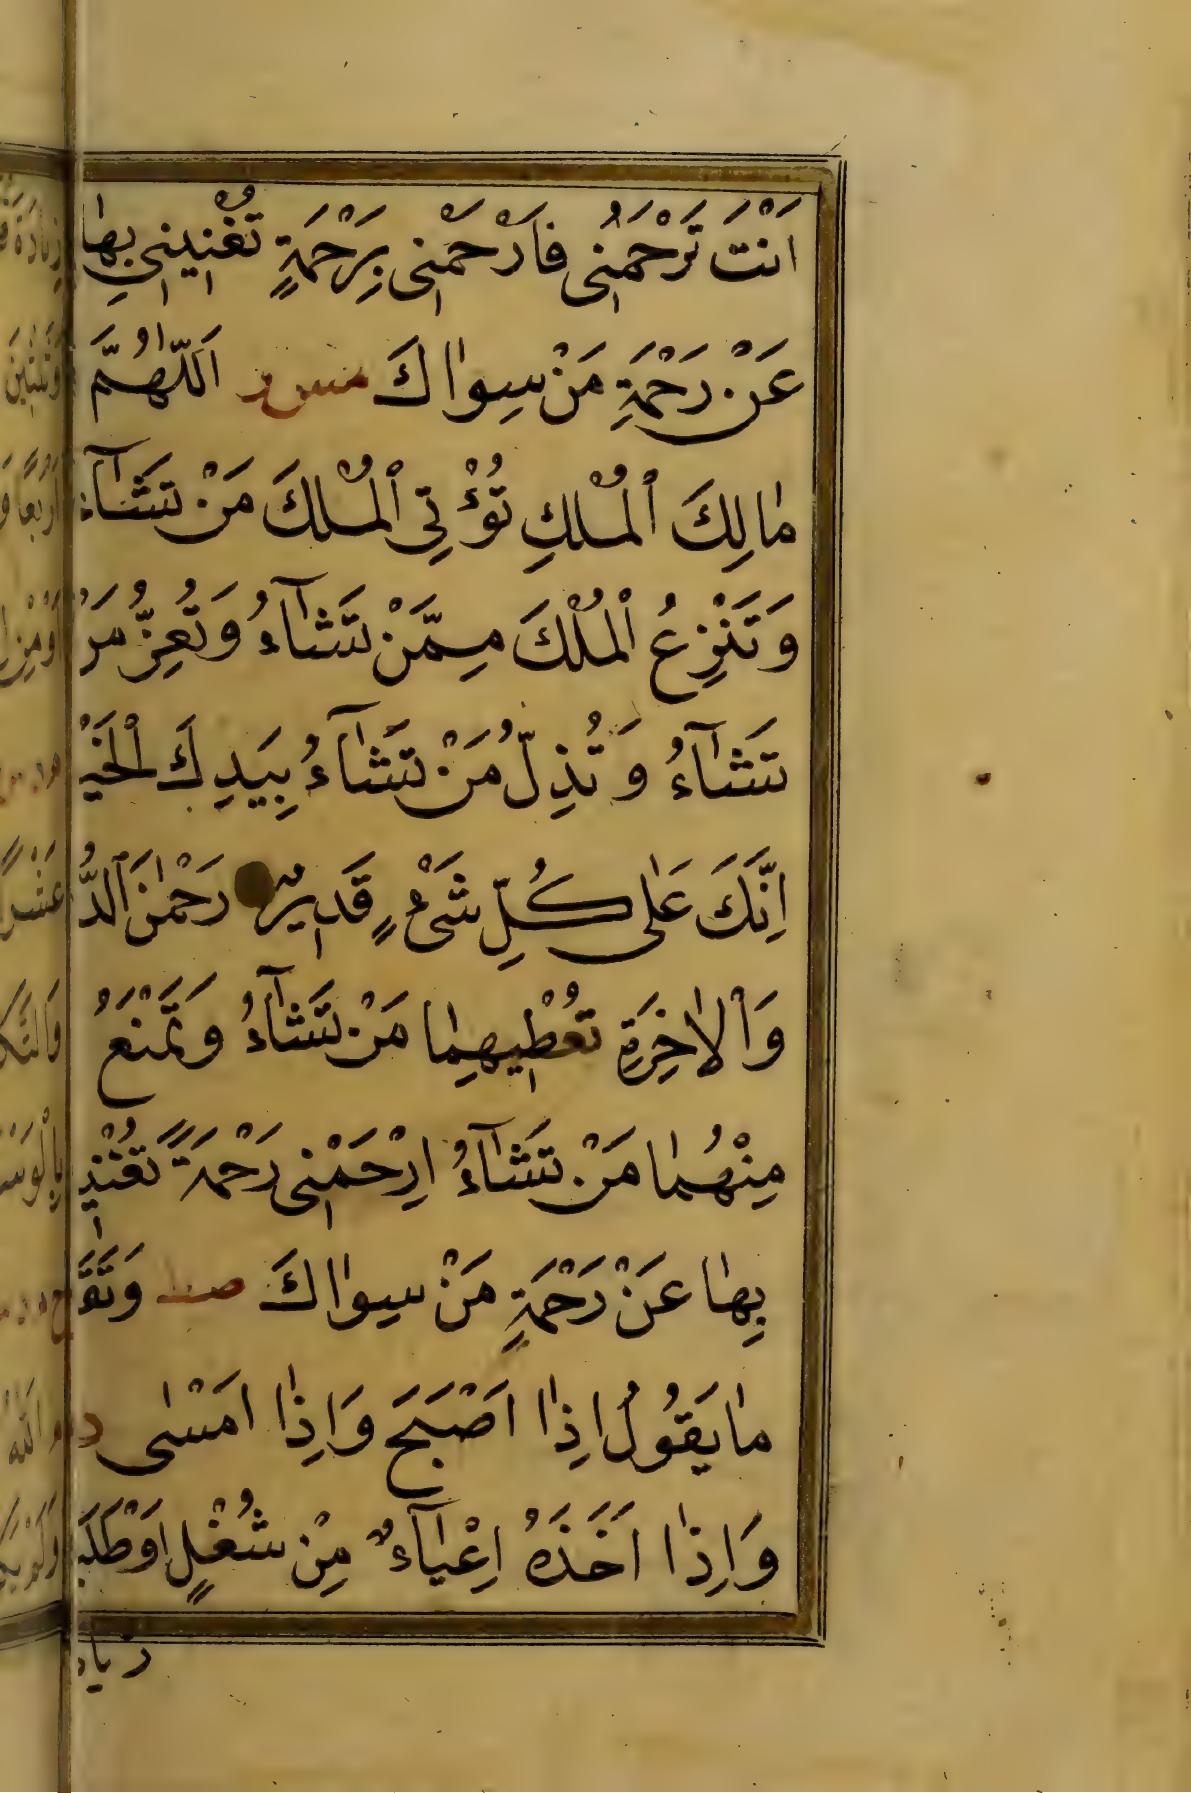 اَنْتَ تَرْحَمُنِى فَارْحَمْنِى بِرَحْمَةٍ تُغْنِينِى بِهَا
عَنْ رَحْمَةِ مَنْ سِوَاكَ مس مر اَللّٰهُمَّ
مَالِكَ الْمُلْكِ تُؤْتِى الْمُلْكَ مَنْ تَشَآءُ
وَتَنْزِعُ الْمُلْكَ مِمَّنْ تَشَآءُ وَتُعِزُّ مَنْ
تَشَآءُ وَتُذِلُّ مَنْ تَشَآءُ بِيَدِكَ الْخَيْ
اِنَّكَ عَلٰى كُلِّ شَىْءٍ قَدِيرٌ رَحْمٰنَ الدُّ
وَالْاٰخِرَةِ تُعْطِيهِمَا مَنْ تَشَآءُ وَتَمْنَعُ
مِنْهُمَا مَنْ تَشَآءُ اِرْحَمْنِى رَحْمَةً تُغْنِي
بِهَا عَنْ رَحْمَةِ مَنْ سِوَاكَ صط وَتَقَ
مَا يَقُولُ اِذَا اَصْبَحَ وَاِذَا اَمْسٰى د
وَاِذَا اَخَذَهُ اِعْيَآءٌ مِنْ شُغْلٍ اَوْطَلَبَ
زيا